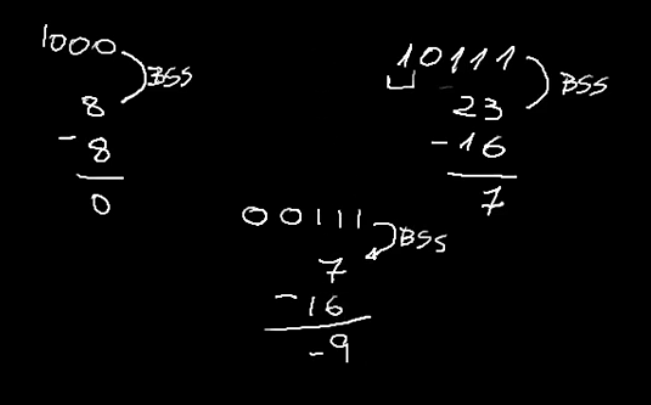 1000
BSS
8
- 8
0
10111
BSS
23
- 16
7
00111
BSS
7
- 16
- 9